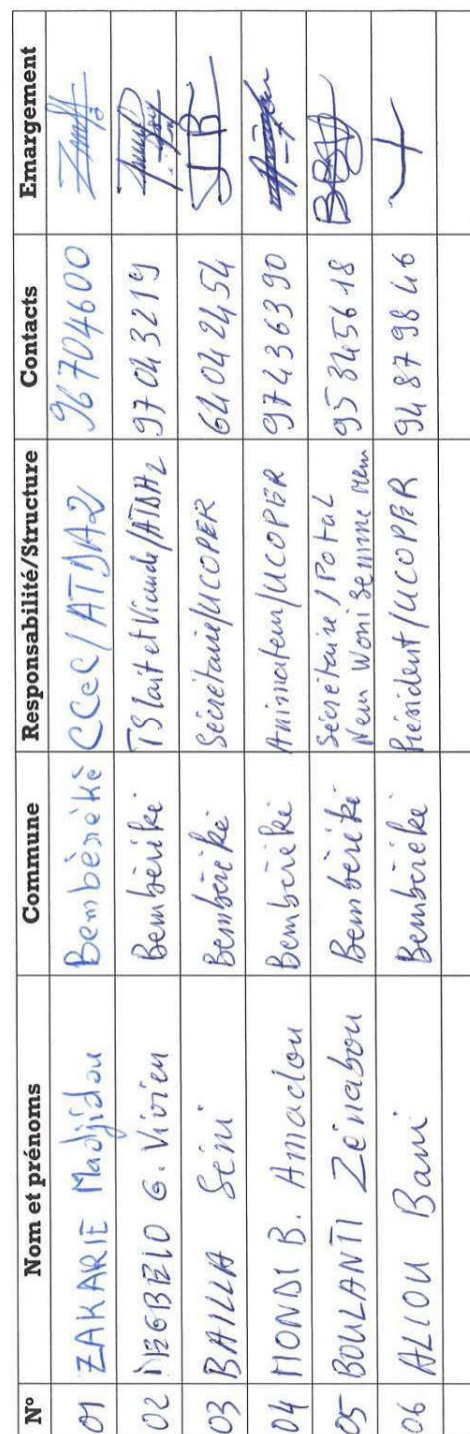 N° Nom et prénoms Commune Responsabilité/Structure Contacts Emargement
01 ZAKARIE Madjidou Bembèrèkè CCeC/ATDA2 96704600
02 G. Vivien Bembèrèkè TS lait et Viande/ATDA2 97043219
03 BAILLA Séni Bembèrèkè Sécrétaire/UCOPER 64042454
04 MONDI B. Amadou Bembèrèkè Animateur/UCOPER 97436390
05 BOULANTI Zénabou Bembèrèkè Sécrétaire/Potal
Nem Woni Semme men 95345618
06 ALIOU Bani Bembèrèkè Président/UCOPER 94879846